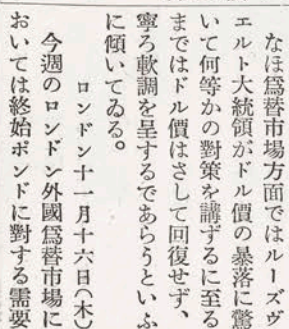 なほ爲替市場方面ではルーズヴ
エルト大統領がドル價の暴落に驚
いて何等かの對策を講ずるに至る
まではドル價はさして回復せず、
寧ろ軟調を呈するであらうといふ
に傾いてゐる。
ロンドン十一月十六日(木)
今週のロンドン外國爲替市場に
おいては終始ポンドに對する需要